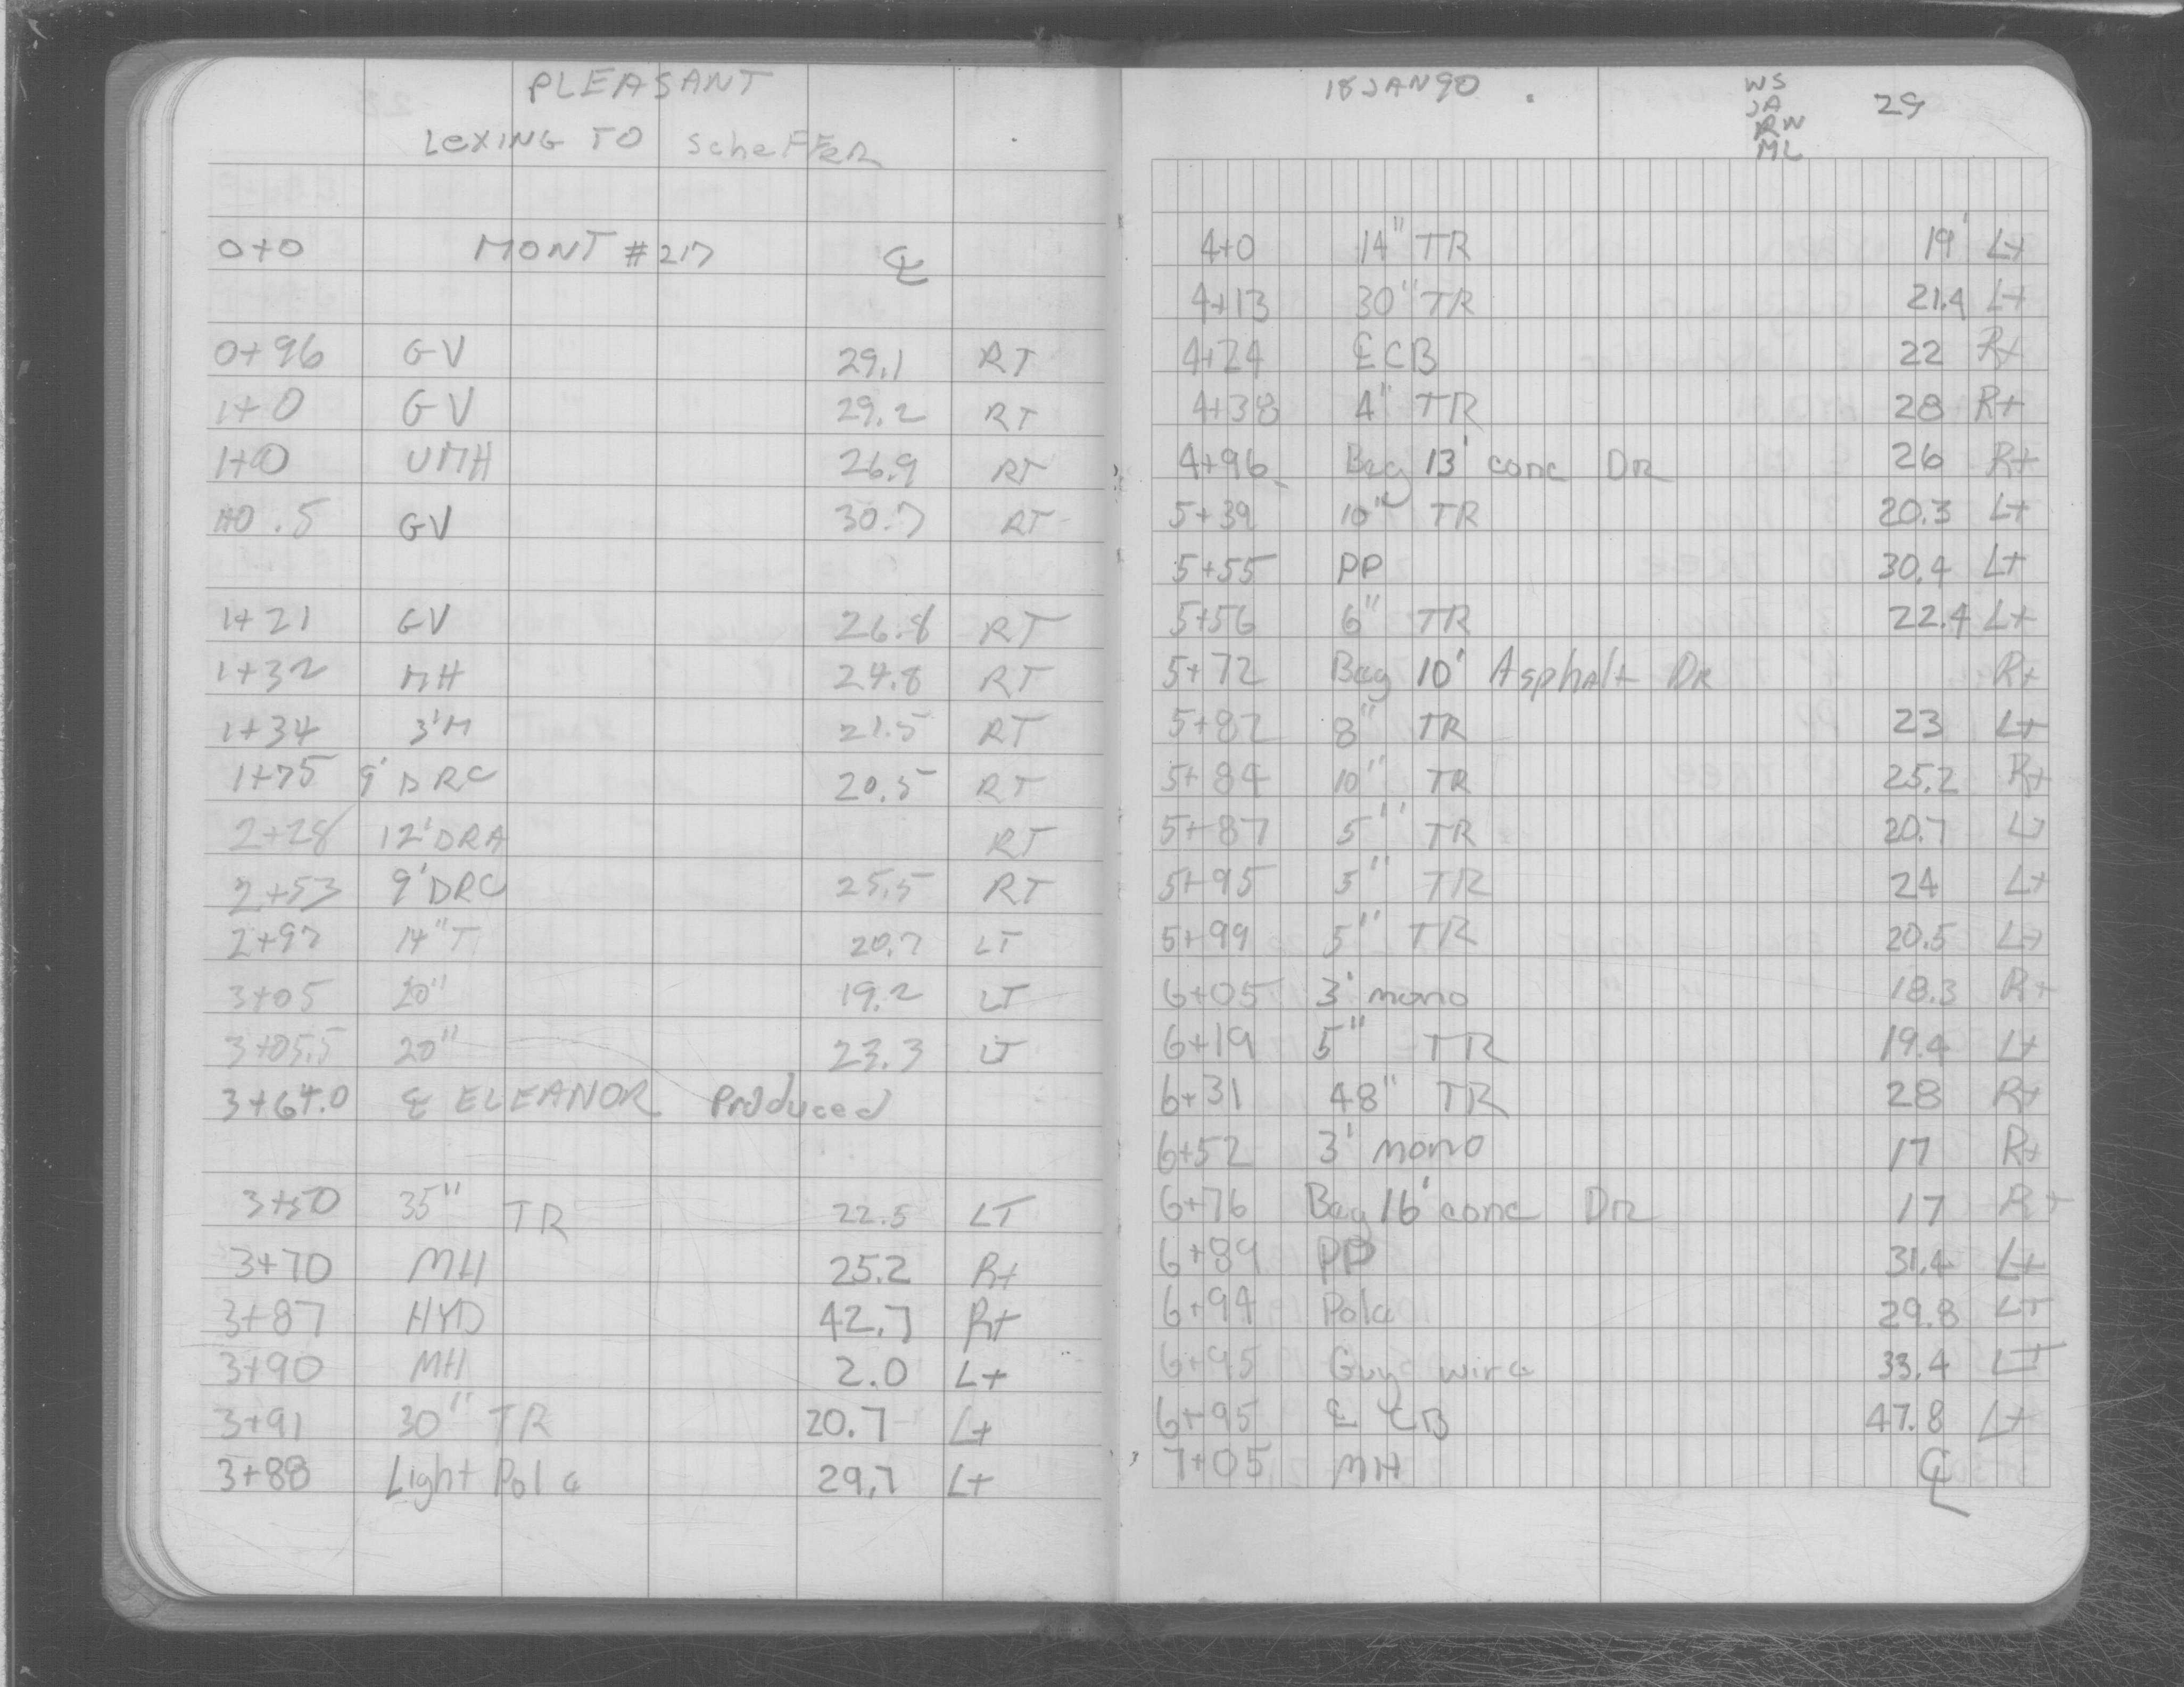 PLEASANT
LEXING TO SCHEFFER
0+0 MONT #217 ℄
0+96 GV 29.1 RT
1+0 GV 29.2 RT
1+0 UMH 26.9 RT
1+0.5 GV 30.7 RT
1+21 GV 26.8 RT
1+32 MH 24.8 RT
1+34 3'M 21.5 RT
1+75 9' DRC 20.5 RT
2+28 12' DRA RT
2+53 9' DRC 25.5 RT
2+97 14" T 20.7 LT
3+05 20" 19.2 LT
3+05.5 20" 23.3 LT
3+64.0 ℄ ELEANOR Produced
3+50 35" TR 22.5 LT
3+70 MH 25.2 Rt
3+87 HYD 42.7 Rt
3+90 MH 2.0 Lt
3+91 30" TR 20.7 Lt
3+88 Light Pole 29.7 Lt
18 JAN 90
WS
JA
RW
ML
29
4+0 14" TR 19' Lt
4+13 30" TR 21.4 Lt
4+24 ℄ CB 22 Rt
4+38 4" TR 28 Rt
4+96 Beg 13' conc DR 26 Rt
5+39 10" TR 20.3 Lt
5+55 PP 30.4 Lt
5+56 6" TR 22.4 Lt
5+72 Beg 10' Asphalt DR Rt
5+82 8" TR 23 Lt
5+84 10" TR 25.2 Rt
5+87 5" TR 20.7 Lt
5+95 5" TR 24 Lt
5+99 5" TR 20.5 Lt
6+05 3' mono 18.3 Rt
6+19 5" TR 19.4 Lt
6+31 48" TR 28 Rt
6+52 3' mono 17 Rt
6+76 Beg 16' conc DR 17 Rt
6+89 PP 31.4 Lt
6+94 Pole 29.8 LT
6+95 Guy wire 33.4 LT
6+95 ℄ CB 47.8 Lt
7+05 MH ℄